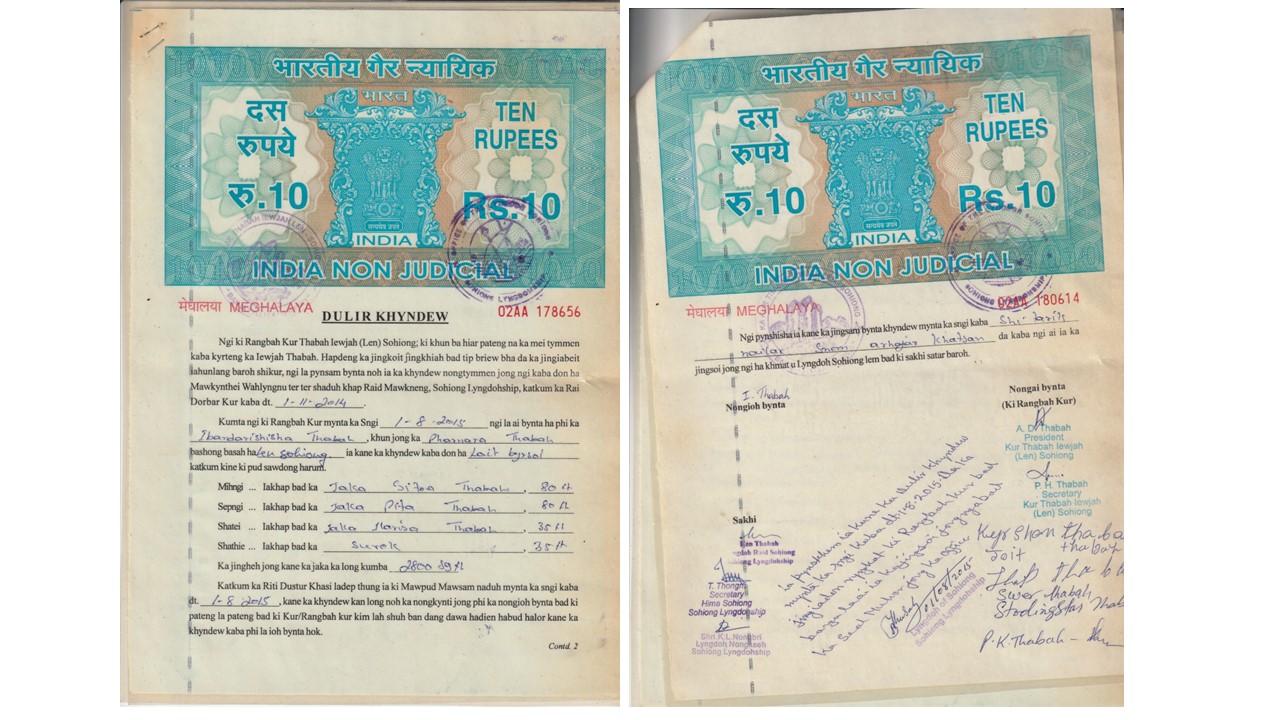 भारतीय गैर न्यायिक
भारत
दस
रुपये
रु.10
TEN
RUPEES
Rs.10
सत्यमेव जयते
INDIA
INDIA NON JUDICIAL
मेघालया MEGHALAYA
02AA 178656
DULIR KHYNDEW
Ngi ki Rangbah Kur Thabah Iewjah (Len) Sohiong; ki khun ba hiar pateng na ka mei tymmen
kaba kyrteng ka Iewjah Thabah. Hapdeng ka jingkoit jingkhiah bad tip briew bha da ka jingiabeit
iahunlang baroh shikur, ngi la pynsam bynta noh ia ka khyndew nongtymmen jong ngi kaba don ha
Mawkynthei Wahlyngnu ter ter shaduh khap Raid Mawkneng, Sohiong Lyngdohship, katkum ka Rai
Dorbar Kur kaba dt. 1-11-2014.
Kumta ngi ki Rangbah Kur mynta ka Sngi 1-8-2015 ngi la ai bynta ha phi ka
Ibandarishisha Thabah, khun jong ka Phamara Thabah
bashong basah ha Len Sohiong ia kane ka khyndew kaba don ha Lait
katkum kine ki pud sawdong harum.
Mihngi ... Iakhap bad ka Jaka Thabah, 80 ft
Sepngi ... Iakhap bad ka Jaka Rita Thabah, 80 ft
Shatei ... Iakhap bad ka Jaka Marisa Thabah, 35 ft
Shathie ... Iakhap bad ka Surok, 35 ft
Ka jingheh jong kane ka jaka ka long kumba 2800 sq ft
Katkum ka Riti Dustur Khasi ladep thung ia ki Mawpud Mawsam naduh mynta ka sngi kaba
dt. 1-8-2015, kane ka khyndew kan long noh ka nongkynti jong phi ka nongioh bynta bad ki
pateng la pateng bad ki Kur/Rangbah kur kim lah shuh ban dang dawa hadien habud halor kane ka
khyndew kaba phi la ioh bynta hok.
Contd. 2
भारतीय गैर न्यायिक
भारत
दस
रुपये
रु.10
TEN
RUPEES
Rs.10
सत्यमेव जयते
INDIA
INDIA NON JUDICIAL
मेघालया MEGHALAYA
02AA 180614
Ngi pynshisha ia kane ka jingsam bynta khyndew mynta ka sngi kaba Shi-tarik
nailar Snem arhajar khatsan da kaba ngi ai ia ka
jingsoi jong ngi ha khmat u Lyngdoh Sohiong lem bad ki sakhi satar baroh.
I. Thabah
Nongioh bynta
Nongai bynta
(Ki Rangbah Kur)
A. D. Thabah
President
Kur Thabah Iewjah
(Len) Sohiong
P. H. Thabah
Secretary
Kur Thabah Iewjah
(Len) Sohiong
Sakhi
Thabah
Raid Sohiong
Lyngdohship
T. Thongni
Secretary
Hima Sohiong
Sohiong Lyngdohship
Shri.K.L.Nongbri
Lyngdoh Nongkseh
Sohiong Lyngdohship
la pynskhem ia kane ka Dulir khyndew
mynta ka sngi kaba dt. 1-8-2015. Da ka
ki Rangbah kur bad
01/08/2015
Lyngdoh of Sohiong
Sohiong Lyngdohship
thabah
Swer thabah
P.K. Thabah